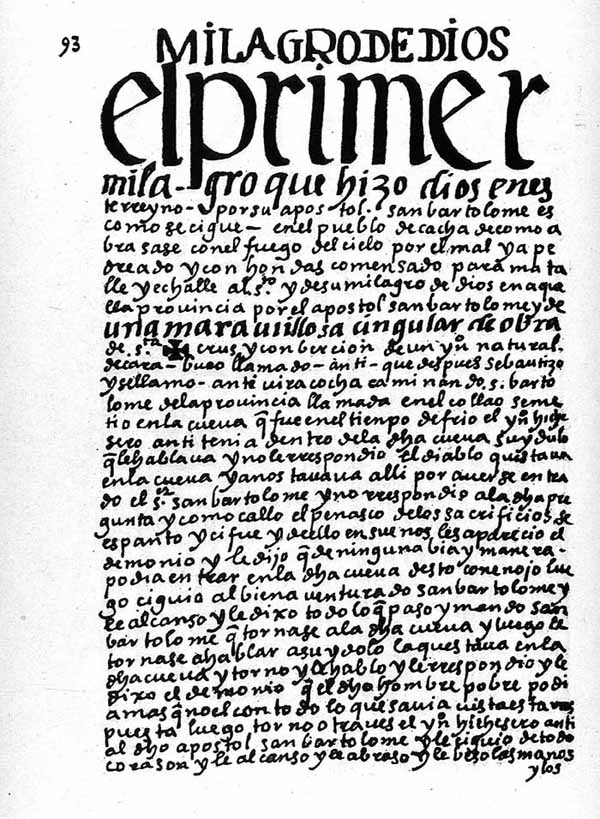 93
MILAGRO DE DIOS
el primer
mila-gro que hizo dios en es
te rreyno - por su apostol. san bartolome es
como se cigue - en el pueblo de cacha de como a
brasase con el fuego del cielo por el mal y ape
dreado y con hondas comensado para mata
lle y echalle al sto y de su milagro de dios en aque
lla provincia por el apostol san bartolome y de
una mara uillosa cingular de obra
de sta ✠ crus y conbercion de un yn natural.
de cara-buco llamado-anti-que despues se bautizo
y se llamo-anti uiracocha caminando s. barto
lome de la provincia llamada en el collao se me
tio en la cueva q̃ fue en el tienpo de frio el yn hiche
sero anti tenia dentro de la dha cueva su ydulo
q̃ le hablaua y no le rrespondio el diablo questaua
en la cueva y anos tauaua alli por auerse entra
do el sr san bartolome y no rrespondio a la dha pre
gunta y como callo el penasco de los sacrificios se
espanto y ci fue y dello en suenos les aparecio el
demonio y le dijo q̃ de ninguna bia y manera-
podia entrar en la dha cueva desto con enojo lue
go ciguio al bienauenturado san bartolome y
le alcanso y le dixo todo lo q̃ paso y mando san
bartolome q̃ tornase a la dha cueva y luego le
tornase a hablar a su ydolo la questaua en la
dha cueva y torno y le hablo y le rrespondio y le
dixo el demonio q̃ el dho hombre pobre podi
a mas q̃ no el con todo lo que sauia uista esta rres
puesta luego torno otra ves el yn hichesero anti
al dho apostol san bartolome y le siguio de todo
corason y le alcanso y le abraso y le beso las manos
y los